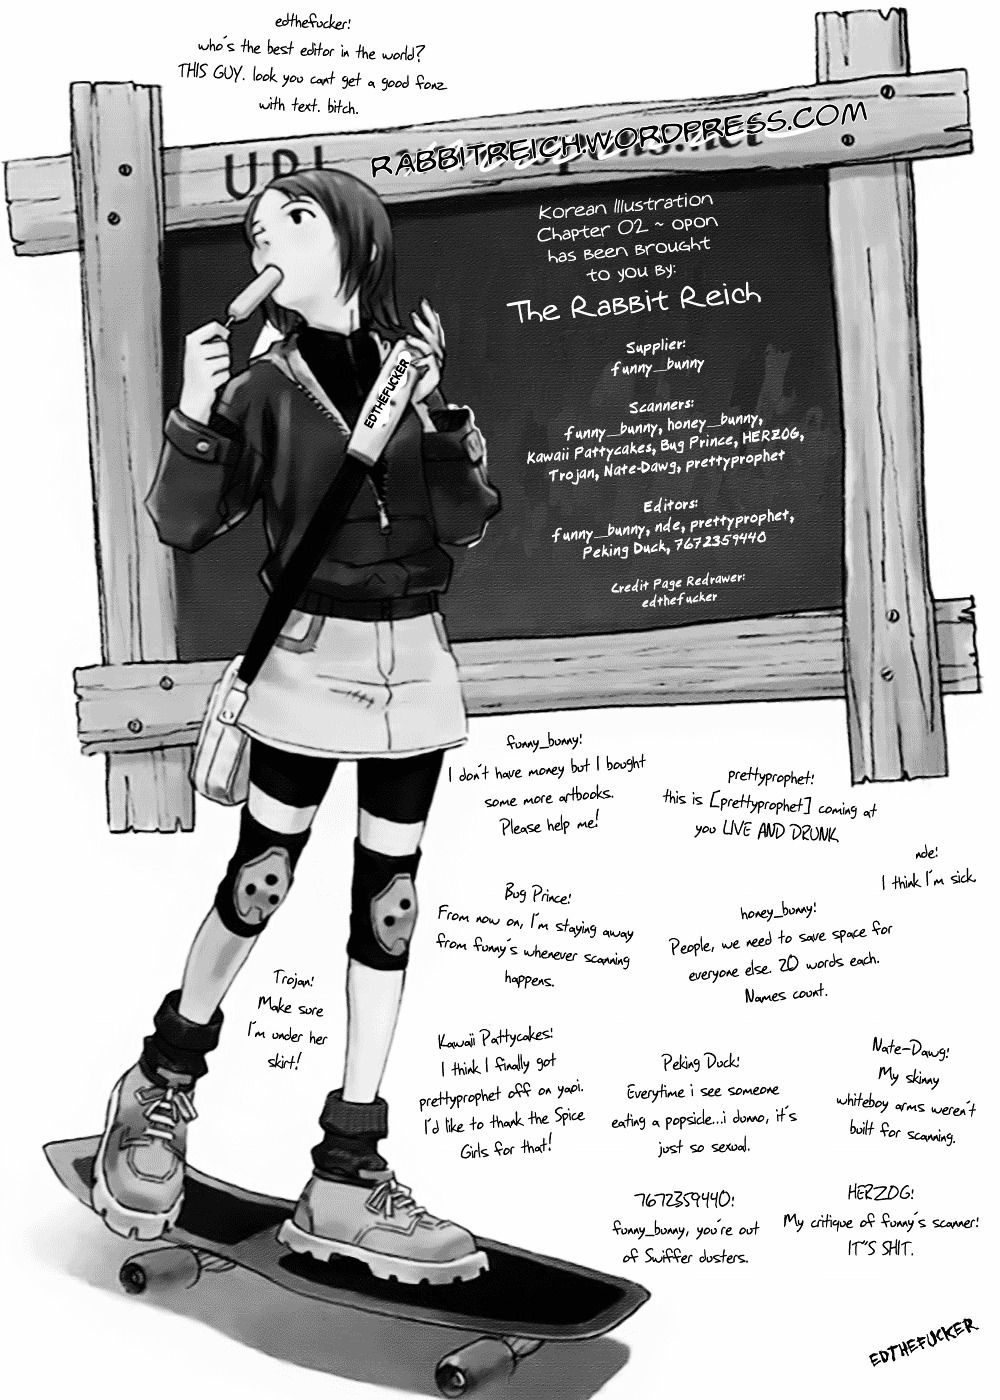 edthefucker!
who's the best editor in the world?
THIS GUY. look you cant get a good fonz
with text. bitch.
URL
RABBITREICH.WORDPRESS.COM
Korean Illustration
Chapter 02 ~ opon
has Been Brought
to you By:
The Rabbit Reich
Supplier:
funny_bunny
Scanners:
funny_bunny, honey_bunny,
Kawaii Pattycakes, Bug Prince, HERZOG,
Trojan, Nate-Dawg, prettyprophet
Editors:
funny_bunny, nde, prettyprophet,
Peking Duck, 7672359440
Credit Page Redrawer:
edthefucker
EDTHEFUCKER
funny_bunny!
I don't have money but I bought
some more artbooks.
Please help me!
prettyprophet!
this is [prettyprophet] coming at
you LIVE AND DRUNK
nde!
I think I'm sick.
Bug Prince!
From now on, I'm staying away
from funny's whenever scanning
happens.
honey_bunny!
People, we need to save space for
everyone else. 20 words each.
Names count.
Trojan!
Make sure
I'm under her
skirt!
Kawaii Pattycakes!
I think I finally got
prettyprophet off on yaoi.
I'd like to thank the Spice
Girls for that!
Peking Duck!
Everytime i see someone
eating a popsicle...i dunno, it's
just so sexual.
Nate-Dawg!
My skinny
whiteboy arms weren't
built for scanning.
7672359440!
funny_bunny, you're out
of Swiffer dusters.
HERZOG!
My critique of funny's scanner!
IT"S SHIT.
EDTHEFUCKER